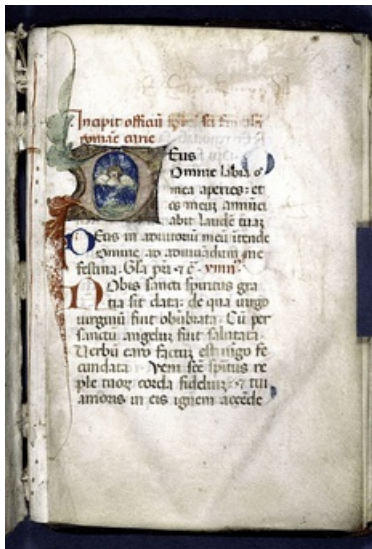 Incipit officiu sci
romāe curie
Deus
Domine labia
mea aperies: et
os meuz annūci
abit laudē tuaz
Deus in adiutoriū meū ītende
Domine ad adiuuādum me
festina. Gla pri ymn
Nobis sancti spiritus gra
tia sit data: de qua uirgo
uirginū fuit obūbrata. Cū per
sanctū angeluz fuit salutata.
Uerbū caro factuz est uirgo fe
cundata. Veni scē spiritus re
ple tuoz corda fideliuz: tui
amoris in eis ignem accēde